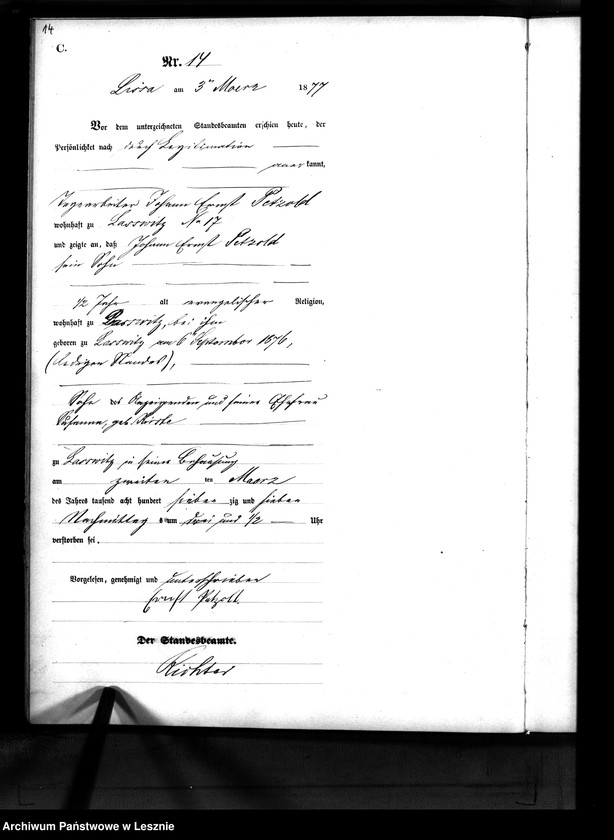 14
C.
Nr. 14
Lissa am 3ten Maerz 1877
Vor dem unterzeichneten Standesbeamten erschien heute, der
Persönlichkeit nach durch Legitimation
anerkannt,
Tagearbeiter Johann Ernst Petzold
wohnhaft zu Lasswitz No 17
und zeigte an, daß Johann Ernst Petzold
sein Sohn
1/2 Jahr alt evangelischer Religion,
wohnhaft zu Lasswitz, bei ihm
geboren zu Lasswitz am 6 September 1876,
(ledigen Standes),
Sohn des Anzeigenden und seiner Ehefrau
Susanna, geb.
zu Lasswitz in seiner Behausung
am zweiten ten Maerz
des Jahres tausend acht hundert sieben zig und sieben
Nachmittag s um drei und 1/2 Uhr
verstorben sei.
Vorgelesen, genehmigt und unterschrieben
Ernst Petzold.
Der Standesbeamte.
Richter
Archiwum Państwowe w Lesznie